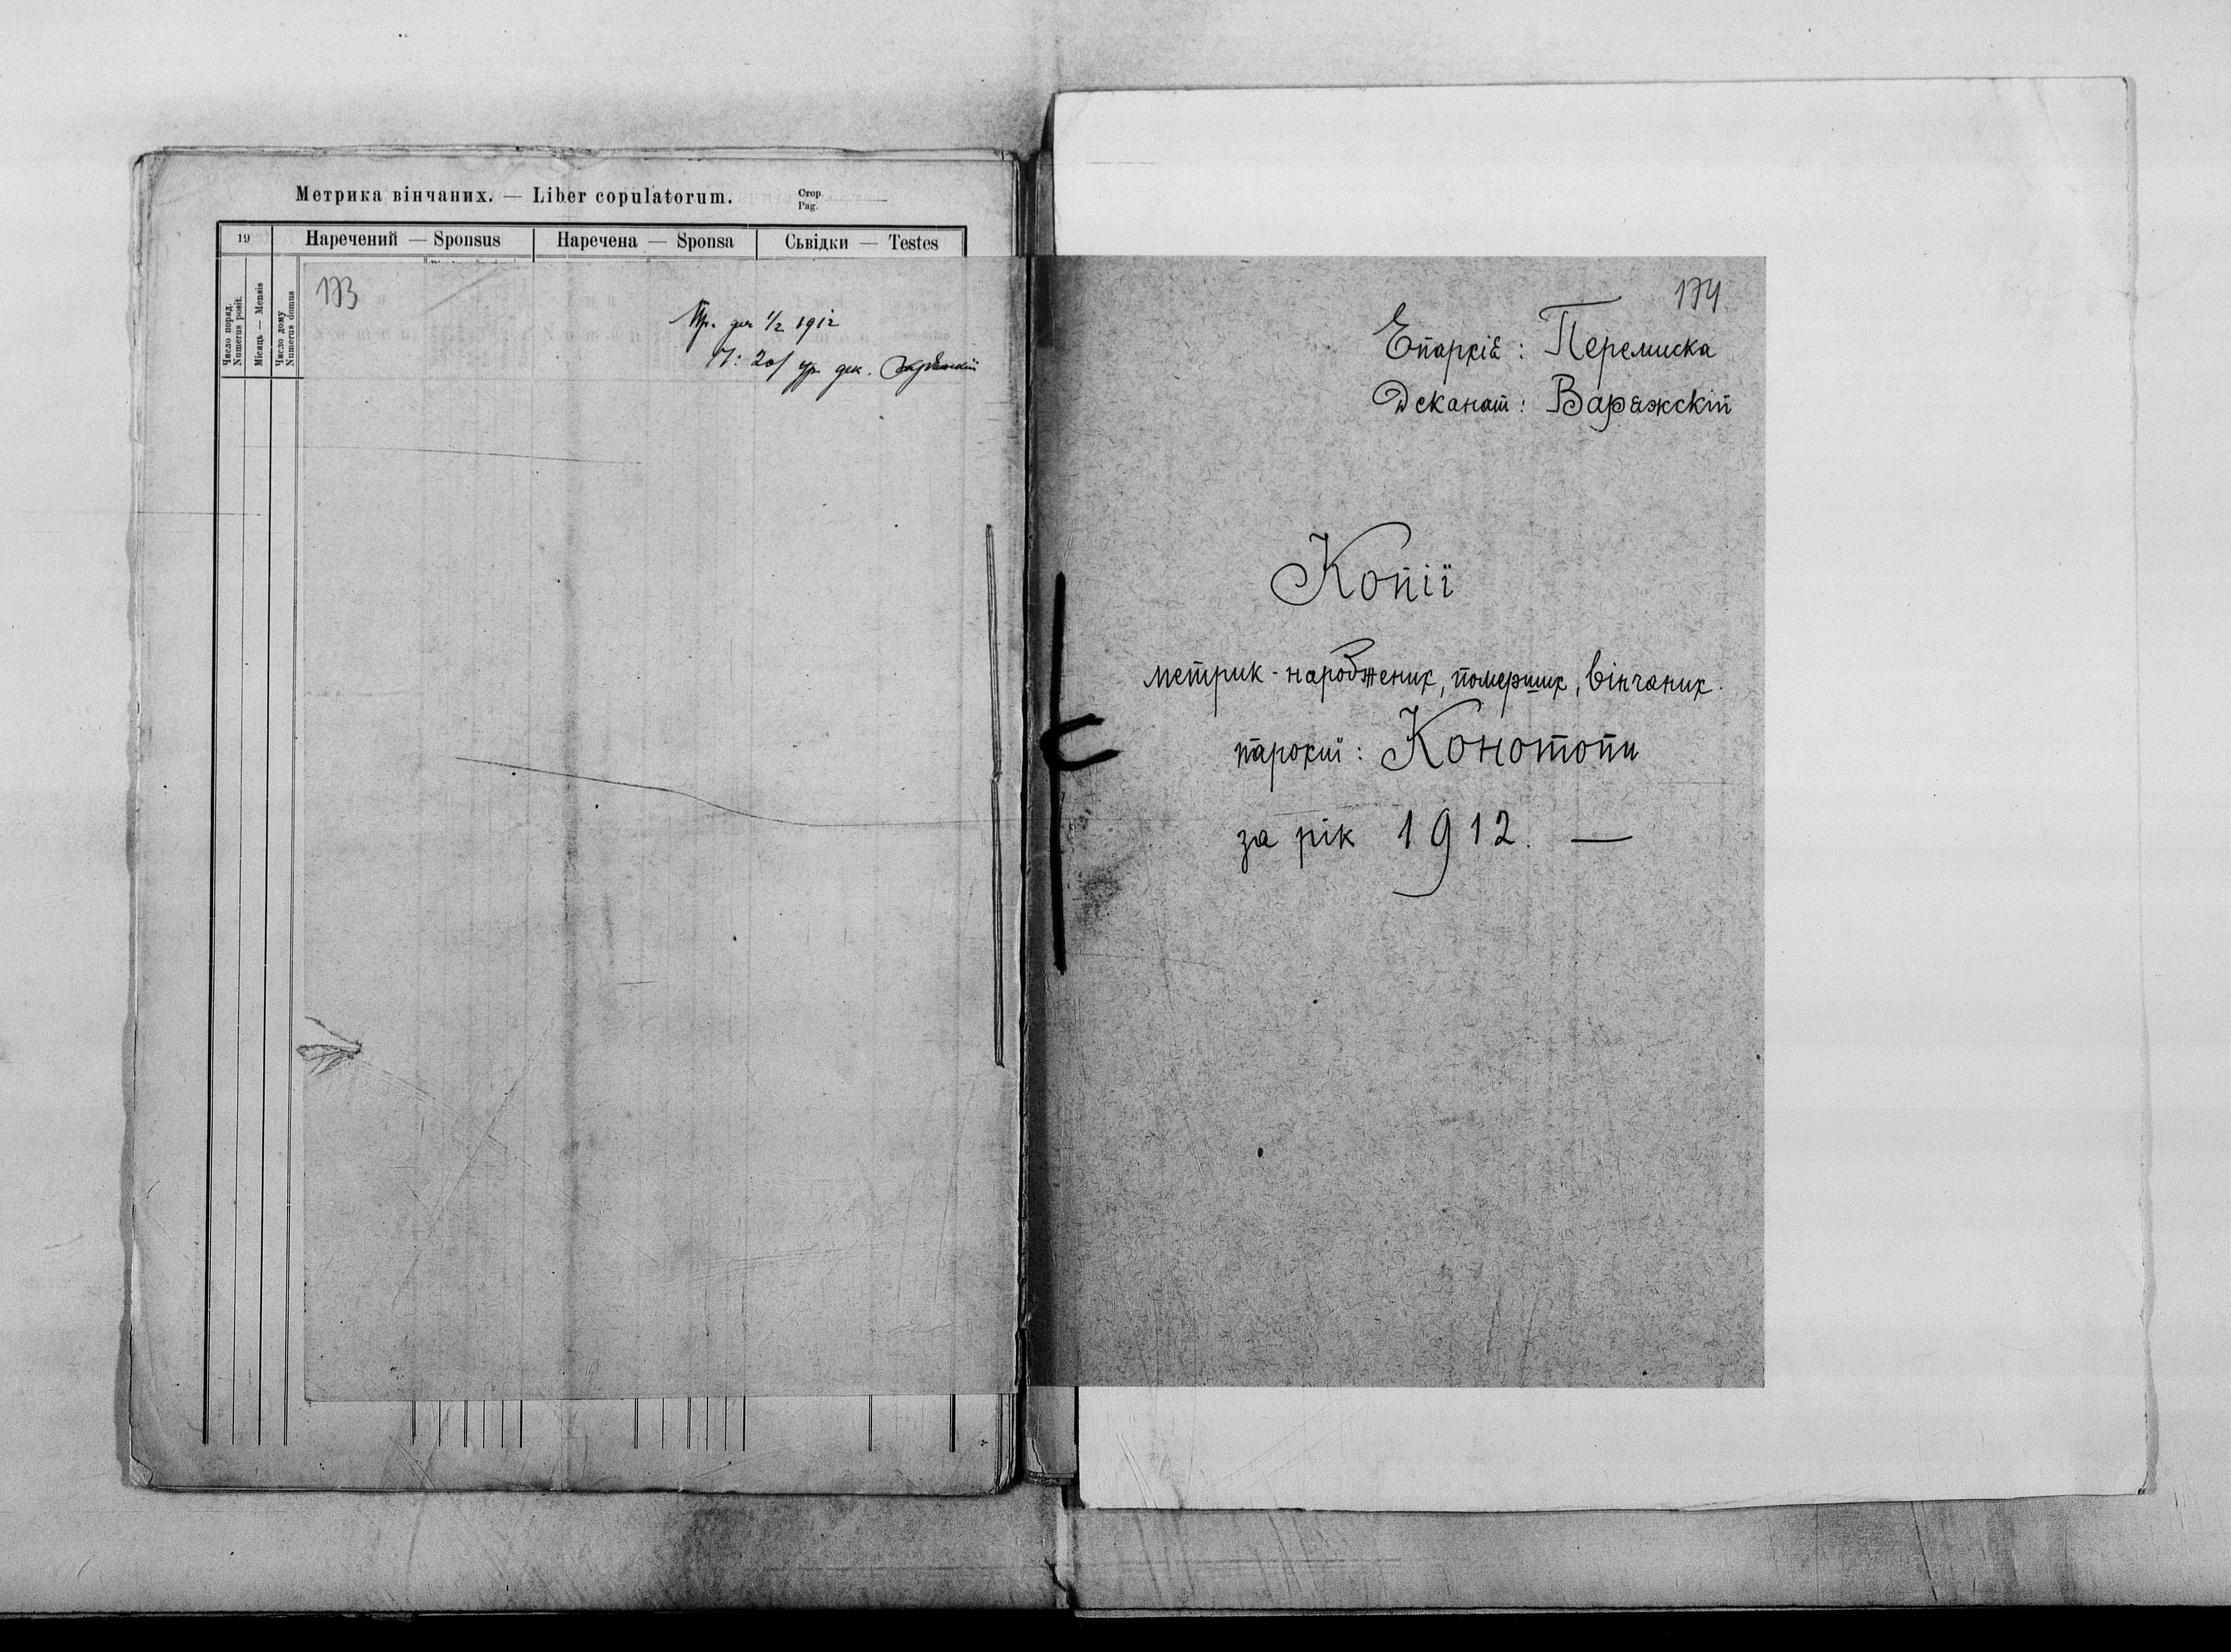 Метрика вінчаних. — Liber copulatorum.
Стор.
Pag.
19
Наречений — Sponsus
Наречена — Sponsa
Сьвідки — Testes
Число поряд.
Numerus posit.
Місяць — Mensis
Число дому
Numerus domus
173
Пр. дня 1/2 1912
Ч: 20/ ур. дек.
174.
Епархія: Перемиска
Деканат: Варяжскій
Копії
метрик - народжених, померших, вінчаних.
парохиї: Конотопи
за рік 1912. —